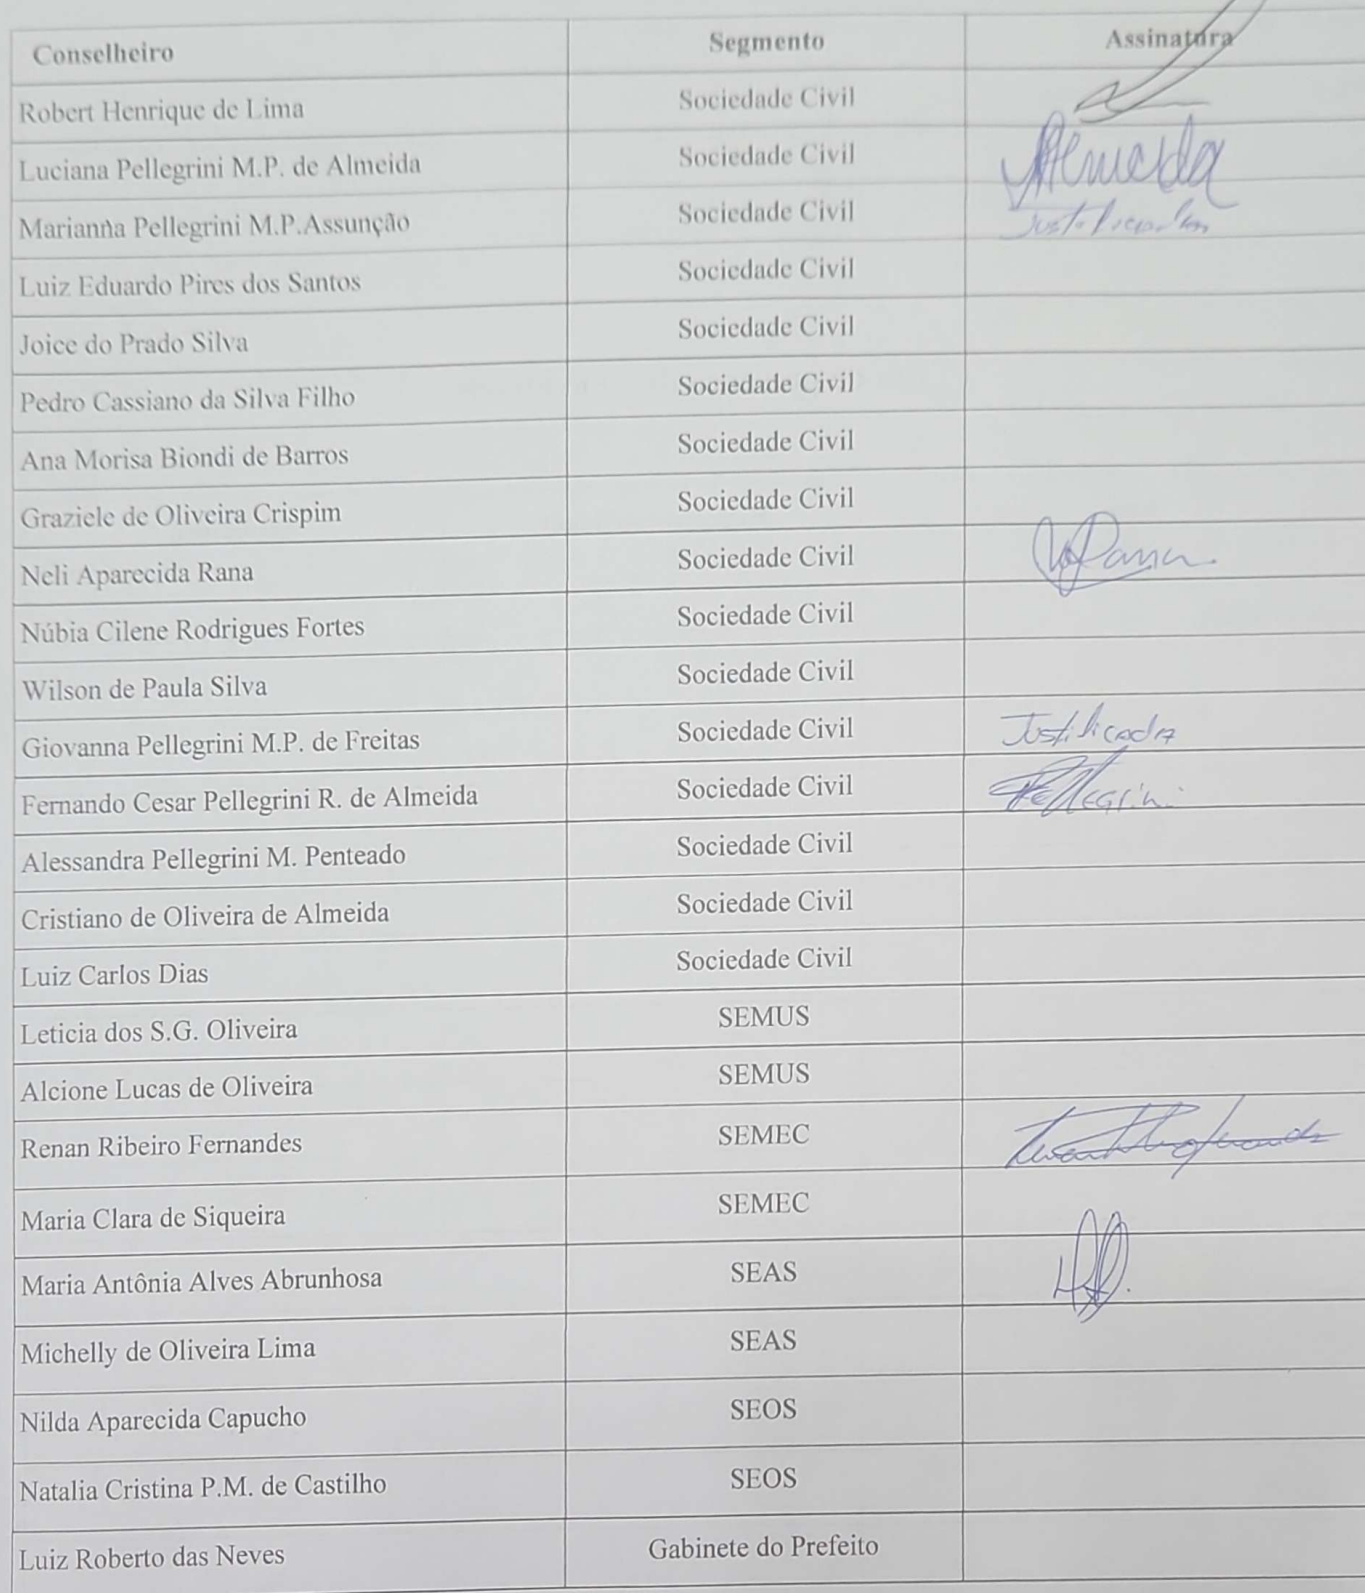 Conselheiro Segmento Assinatura
Robert Henrique de Lima Sociedade Civil
Luciana Pellegrini M.P. de Almeida Sociedade Civil Almeida
Marianna Pellegrini M.P.Assunção Sociedade Civil
Luiz Eduardo Pires dos Santos Sociedade Civil
Joice do Prado Silva Sociedade Civil
Pedro Cassiano da Silva Filho Sociedade Civil
Ana Morisa Biondi de Barros Sociedade Civil
Graziele de Oliveira Crispim Sociedade Civil
Neli Aparecida Rana Sociedade Civil
Núbia Cilene Rodrigues Fortes Sociedade Civil
Wilson de Paula Silva Sociedade Civil
Giovanna Pellegrini M.P. de Freitas Sociedade Civil Justificada
Fernando Cesar Pellegrini R. de Almeida Sociedade Civil Pellegrini
Alessandra Pellegrini M. Penteado Sociedade Civil
Cristiano de Oliveira de Almeida Sociedade Civil
Luiz Carlos Dias Sociedade Civil
Leticia dos S.G. Oliveira SEMUS
Alcione Lucas de Oliveira SEMUS
Renan Ribeiro Fernandes SEMEC
Maria Clara de Siqueira SEMEC
Maria Antônia Alves Abrunhosa SEAS
Michelly de Oliveira Lima SEAS
Nilda Aparecida Capucho SEOS
Natalia Cristina P.M. de Castilho SEOS
Luiz Roberto das Neves Gabinete do Prefeito